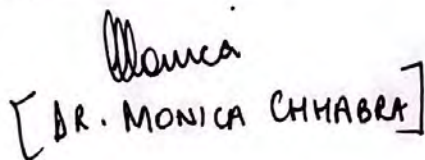 Monica
[DR. MONICA CHHABRA]